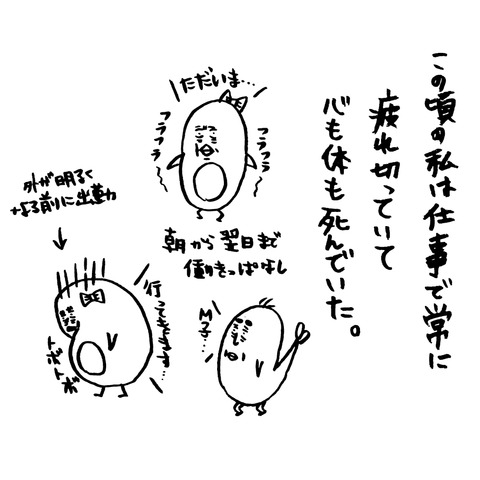 この頃の私は仕事で常に
疲れ切っていて
心も体も死んでいた。
ただいま…
フラフラ
フラフラ
朝から翌日まで
働きっぱなし
外が明るく
なる前に出勤
行ってきます…
トボトボ
M子…